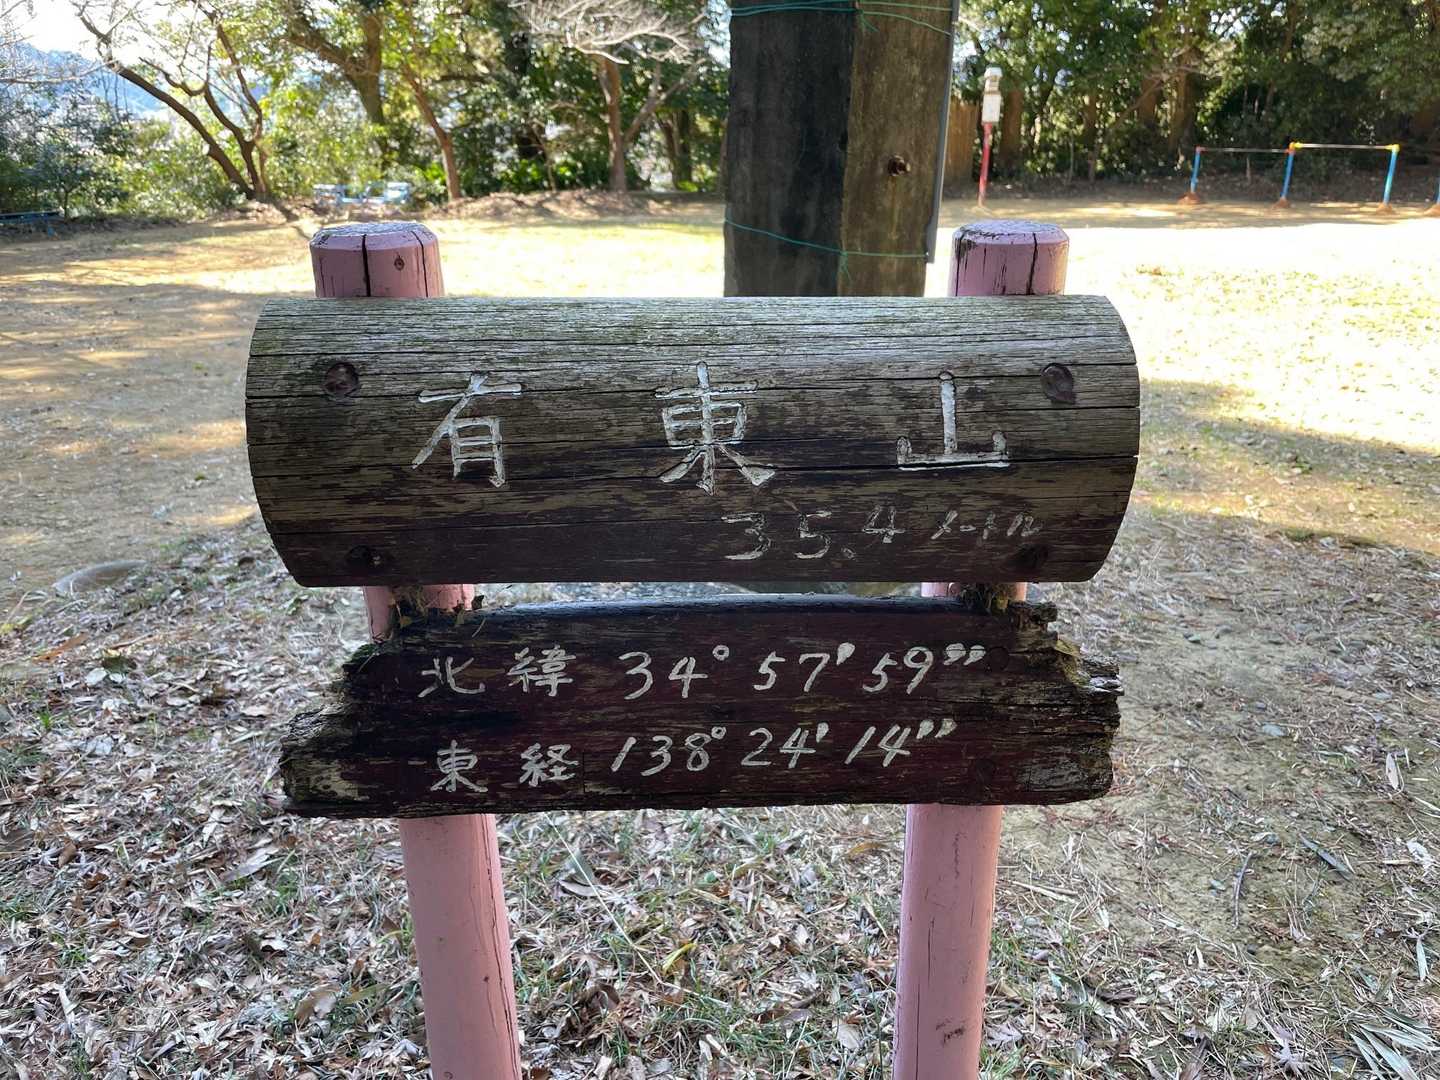 有東山
35.4メートル
北緯 34° 57' 59"
東経 138° 24' 14"